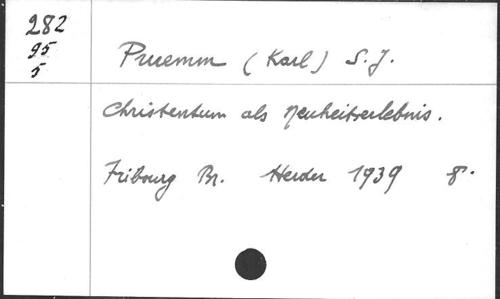 282
95
5
Pruemm (Karl) S.J.
Christentum als Neuheitserlebnis.
Fribourg Br. Herder 1939 8°